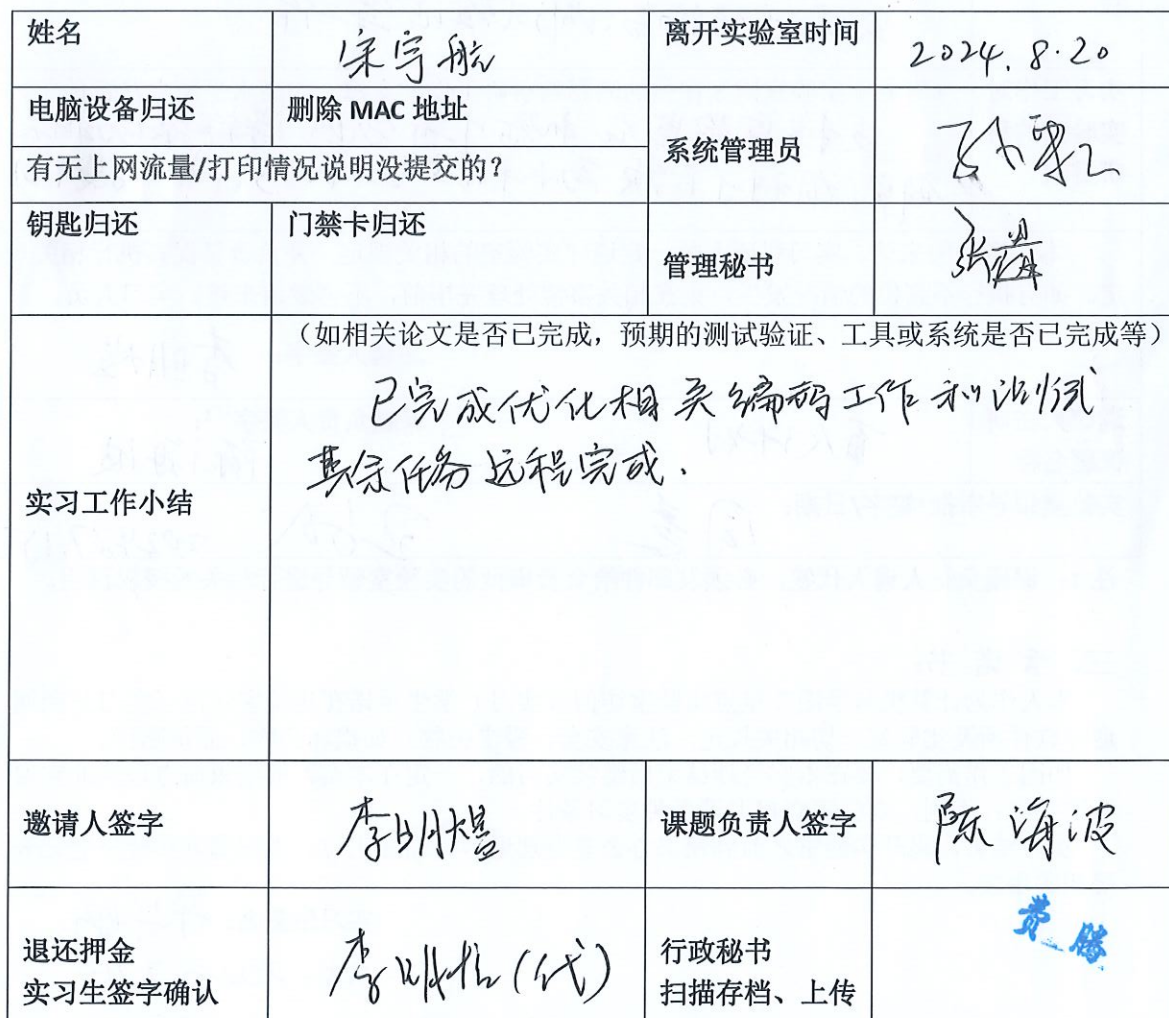 姓名 宋宇航 离开实验室时间 2024.8.20
电脑设备归还 删除 MAC 地址
系统管理员
有无上网流量/打印情况说明没提交的？
钥匙归还 门禁卡归还
管理秘书
（如相关论文是否已完成，预期的测试验证、工具或系统是否已完成等）
已完成优化相关编码工作和测试
其余任务远程完成.
实习工作小结
邀请人签字 李明煜 课题负责人签字 陈海波
费腾
退还押金 行政秘书
实习生签字确认 李明煜(代) 扫描存档、上传